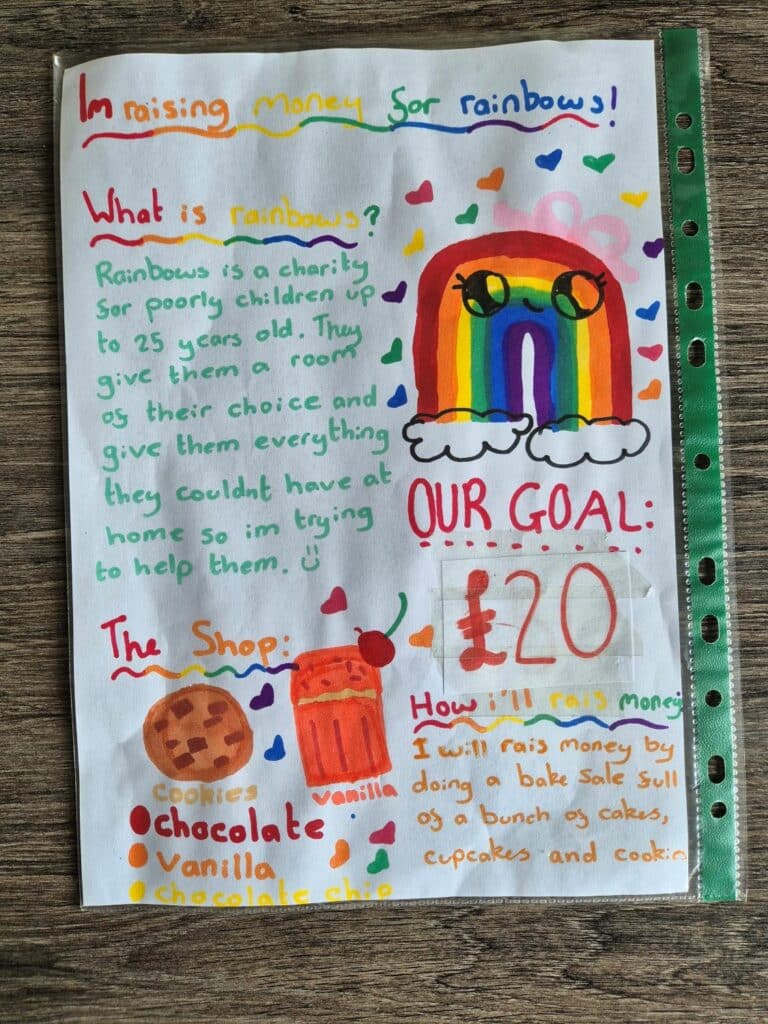 Im raising money for rainbows!
What is rainbows?
Rainbows is a charity
for poorly children up
to 25 years old. They
give them a room
of their choice and
give them everything
they couldnt have at
home so im trying
to help them.
OUR GOAL:
£20
The Shop:
cookies
vanilla
chocolate
vanilla
chocolate chip
How i'll rais money
I will rais money by
doing a bake sale full
of a bunch of cakes,
cupcakes and cookies